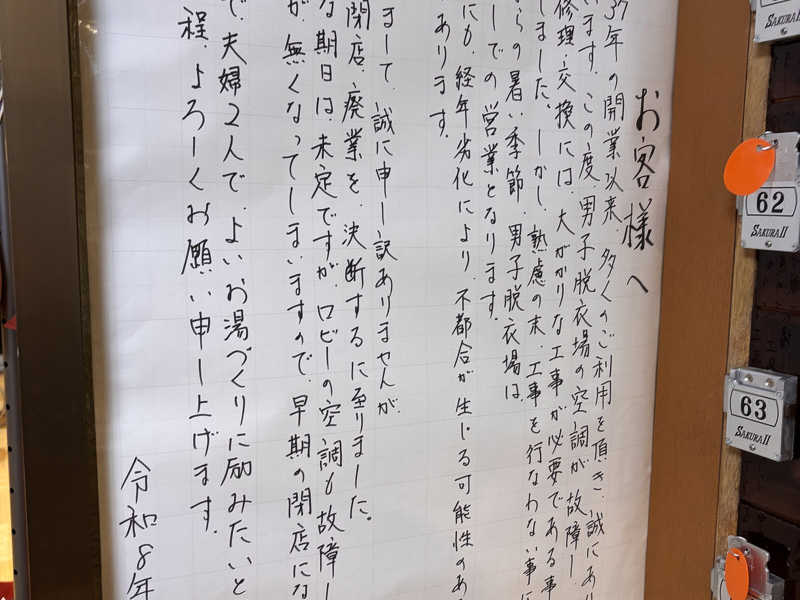 お客様へ
37年の開業以来、多くのご利用を頂き、誠にあり
います。この度、男子脱衣場の空調が故障し
修理・交換には、大がかりな工事が必要である事
しました。しかし、熟慮の末、工事を行なわない事に
らの暑い季節、男子脱衣場は、
ーでの営業となります。
にも、経年劣化により、不都合が生じる可能性のあ
あります。
まして、誠に申し訳ありませんが、
閉店、廃業を、決断するに至りました。
な期日は、未定ですが、ロビーの空調も故障し
が、無くなってしまいますので、早期の閉店にな
で、夫婦2人で、よいお湯づくりに励みたいと
程、よろしくお願い申し上げます。
令和8年
62
SAKURA II
63
SAKURA II